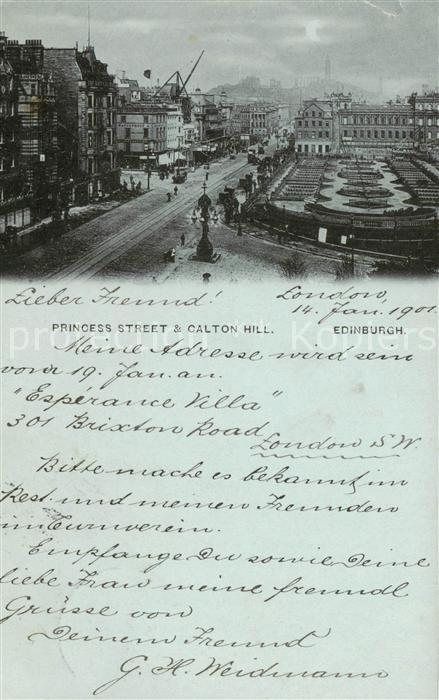 Lieber Freund!
London,
14. Jan. 1901.
PRINCESS STREET & CALTON HILL. EDINBURGH.
Meine Adresse wird sein
vom 19. Jan. an.
"Espérance Villa"
301 Brixton Road
London S.W.
Bitte mache es bekannt im
Rest. und meinen Freunden
im Turnverein.
Empfange Du sowie Deine
liebe Frau meine freundl
Grüsse von
Deinem Freund
G. H. Weidmann